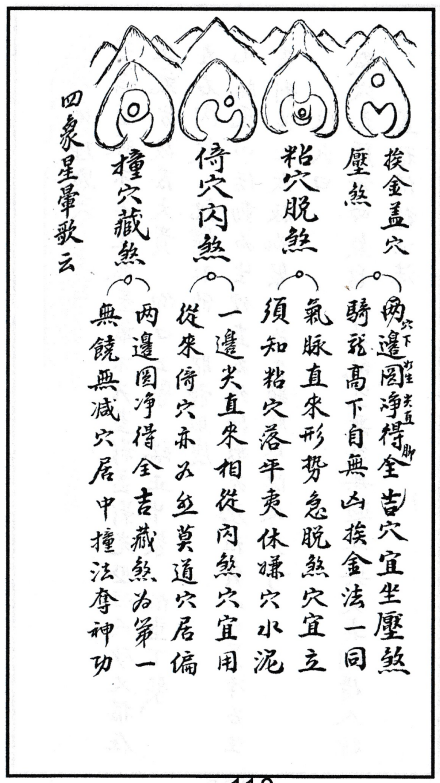 挨金盖穴
壓煞
两邊圎净得全吉穴宜坐壓煞
穴下生尖直脚
騎龍高下自無凶挨金法一同
粘穴脱煞
氣脉直来形势急脱煞穴宜立
須知粘穴落平夷休嫌穴水泥
倚穴闪煞
一邊尖直来相從闪煞穴宜用
從来倚穴亦为然莫道穴居偏
撞穴藏煞
两邊圎净得全吉藏煞为第一
無饒無减穴居中撞法奪神功
四象星暈歌云